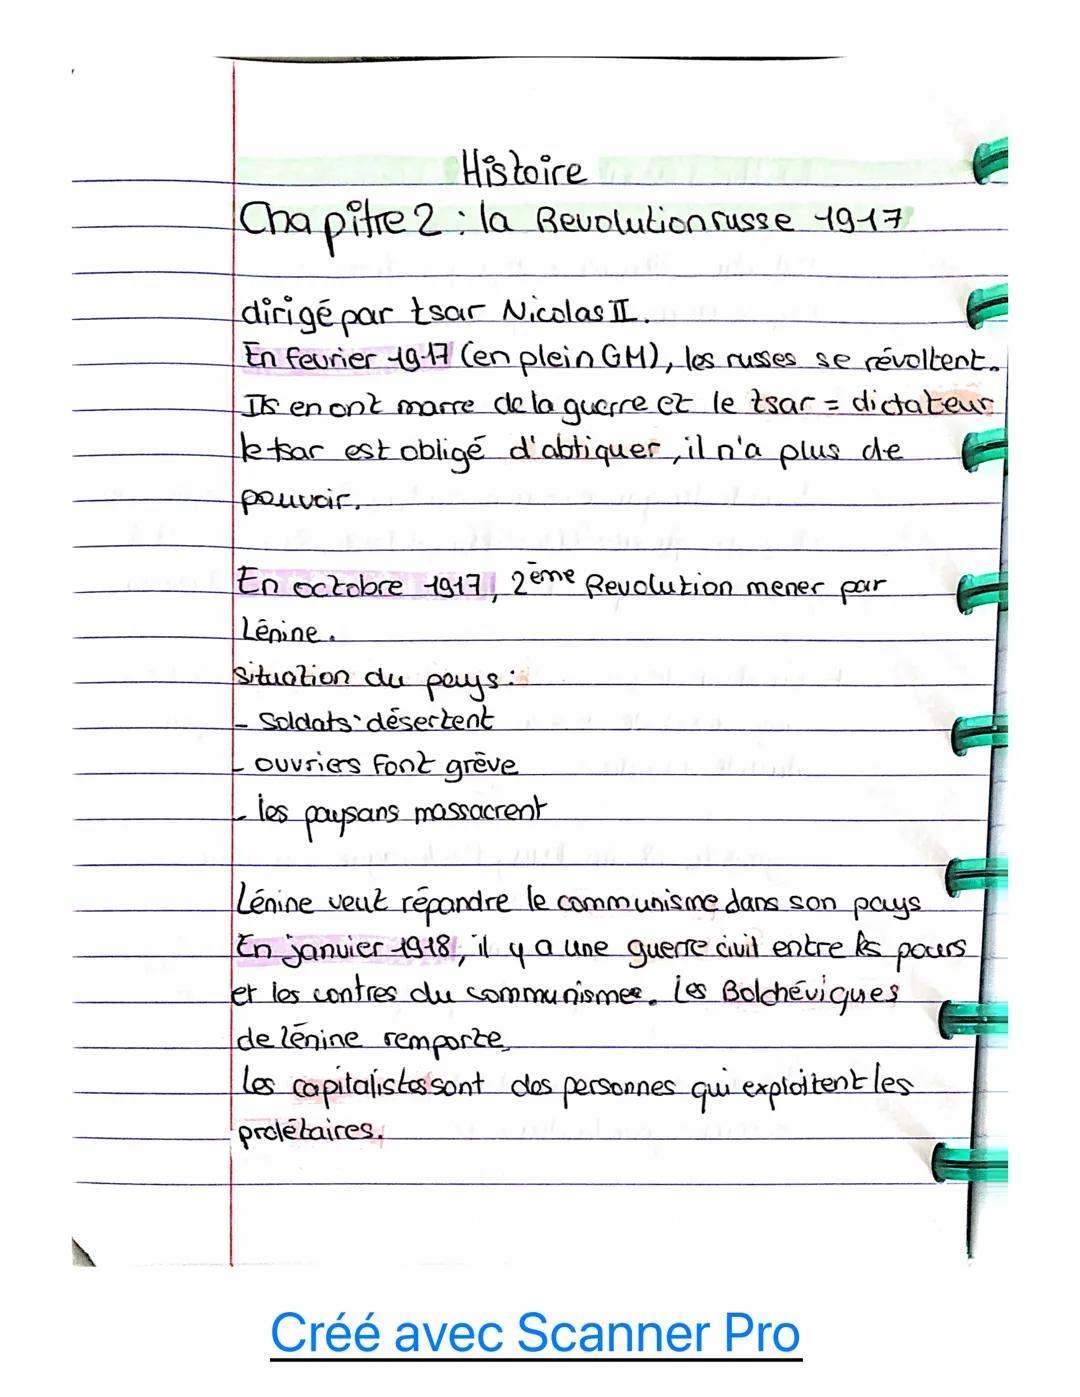 Histoire
Chapitre 2 : la Revolution russe 1917
dirigé par tsar Nicolas II.
En fevrier 1917 (en plein GM), les russes se révoltent.
Ils en ont marre de la guerre et le tsar = dictateur
le tsar est obligé d'abtiquer, il n'a plus de
pouvoir.
En octobre 1917, 2ème Revolution mener par
Lénine.
situation du pays :
- Soldats désertent
- ouvriers font grève
- les paysans massacrent
Lénine veut répandre le communisme dans son pays
En janvier 1918, il y a une guerre civil entre les pours
et les contres du communisme. Les Bolchéviques
de lénine remporte.
Les capitalistes sont des personnes qui exploitent les
prolétaires.
Créé avec Scanner Pro